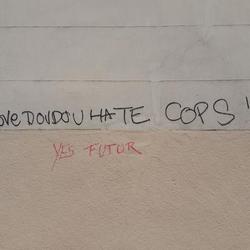 ove DOUDOU HATE COPS "
YES FUTUR